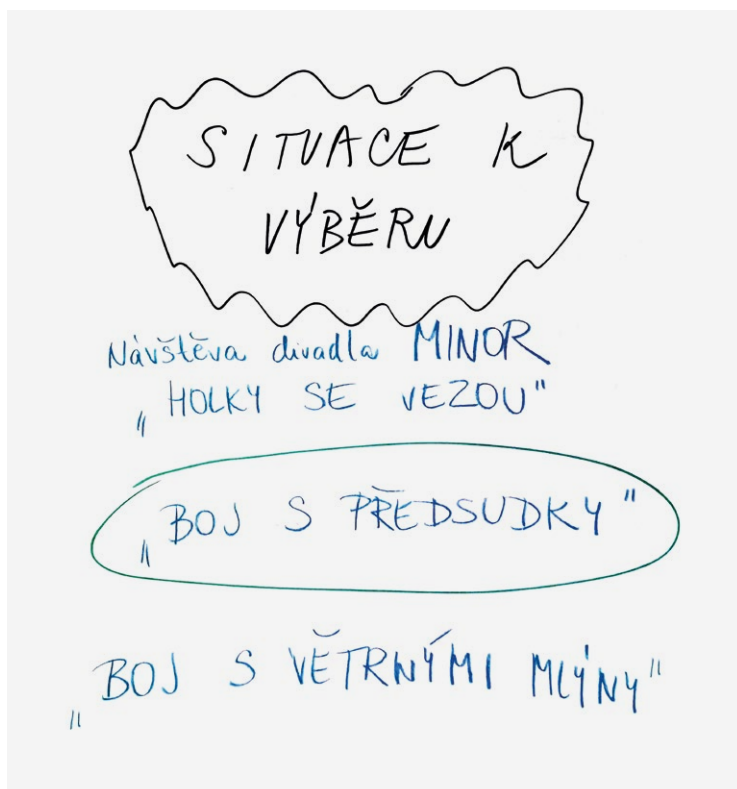 SITUACE K
VÝBĚRU
Návštěva divadla MINOR
„HOLKY SE VEZOU"
„BOJ S PŘEDSUDKY"
„BOJ S VĚTRNÝMI MLÝNY"